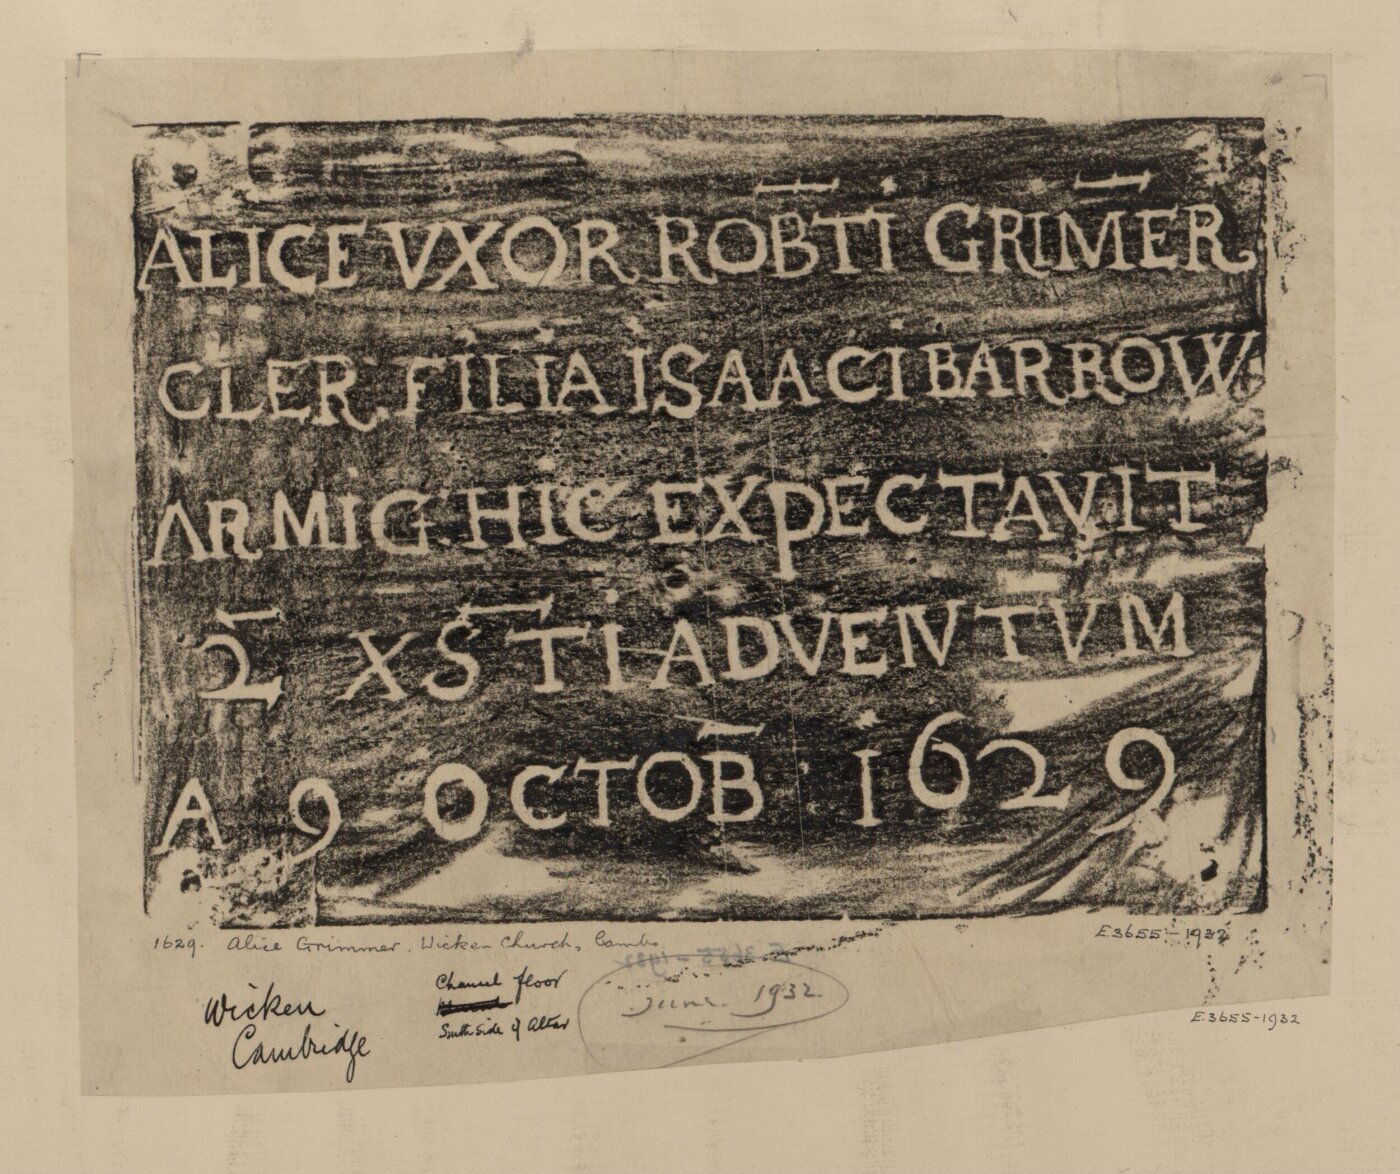 ALICE VXOR ROB̄TI GRIM̄ER
CLER FILIA ISAACI BARROW
ARMIG HIC EXPECTAVIT
XS̄TI ADVENTVM
A 9 OCTOB̄ 1629
1629. Alice Grimmer. Wicken Church, Cambs.
E.3655-1932
Wicken
Cambridge
Chancel floor
South side of Altar
June. 1932.
E.3655-1932
E.3655-1932